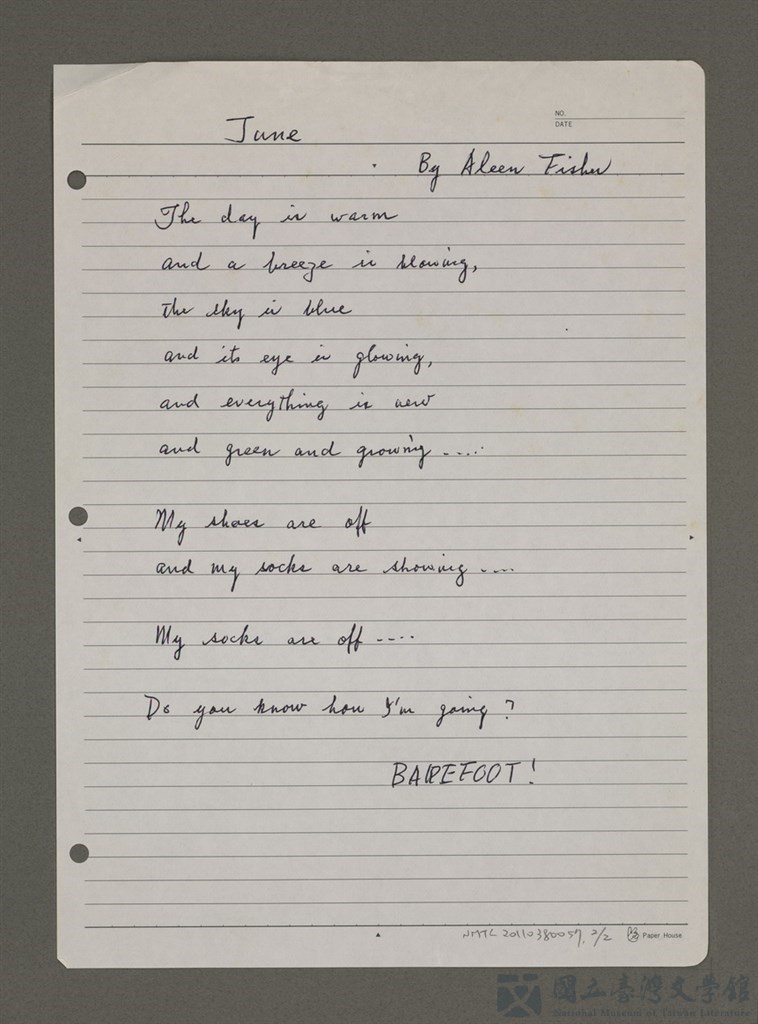 NO.
DATE
June
By Aleen Fisher
The day is warm
and a breeze is blowing,
the sky is blue
and its eye is glowing,
and everything is new
and green and growing .....
My shoes are off
and my socks are showing ....
My socks are off ....
Do you know how I'm going?
BAREFOOT!
NMTL 20110380057, 2/2 Paper House
國立臺灣文學館
National Museum of Taiwan Literature